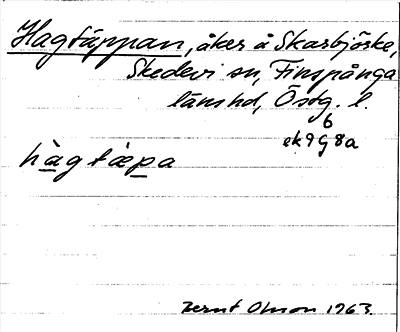 Hagtäppan, åker å Skarbjörke,
Skedevi sn, Finspånga
länshd, Östg. l.
6
ek 9 G 8a
hàgtæpa
Bernt Olsson 1963.